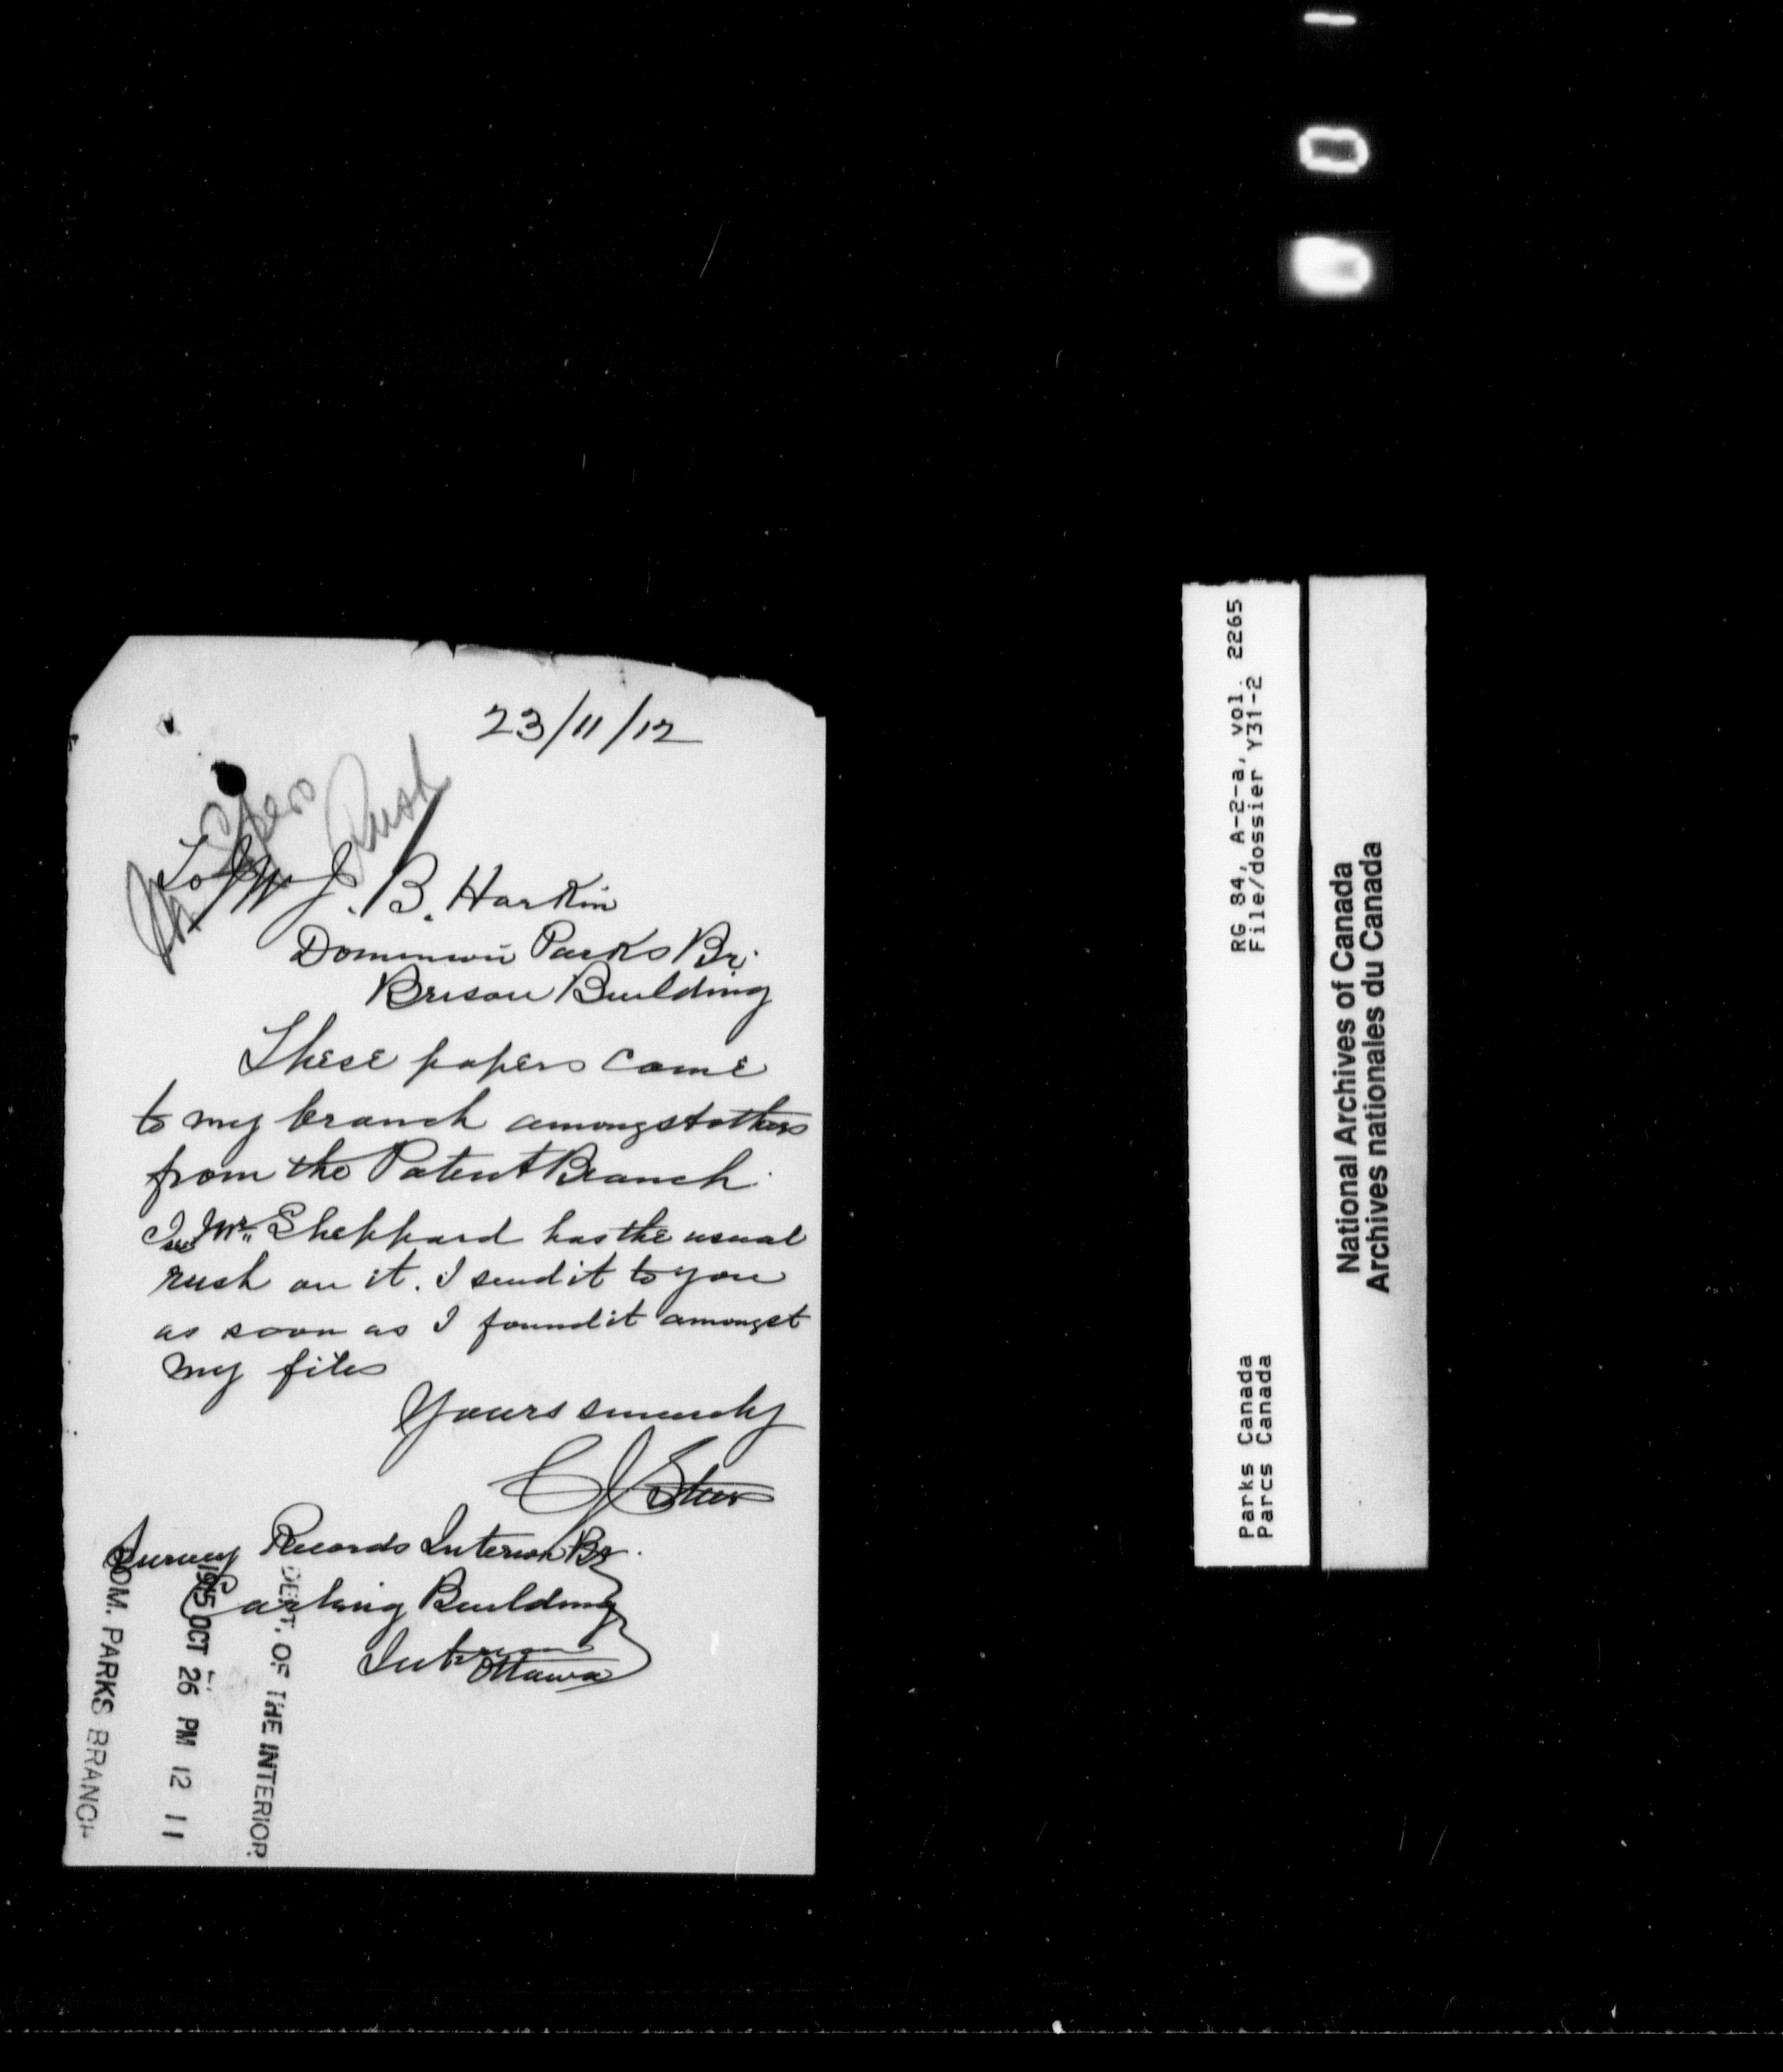 23/11/12
Mr Spero
Rush
To Mr J. B. Harkin
Dominion Parks Br.
Brison Building
These papers came
to my branch amongst others
from the Patent Branch.
I see Mr. Sheppard has the usual
rush on it. I send it to you
as soon as I found it amongst
my files
Yours sincerely
C J Steers
Survey Records Interior Br.
Carling Building
Ottawa
DEPT. OF THE INTERIOR
1915 OCT 26 PM 12 11
DOM. PARKS BRANCH
RG 84, A-2-a, vol. 2265
File/dossier Y31-2
Parks Canada
Parcs Canada
National Archives of Canada
Archives nationales du Canada